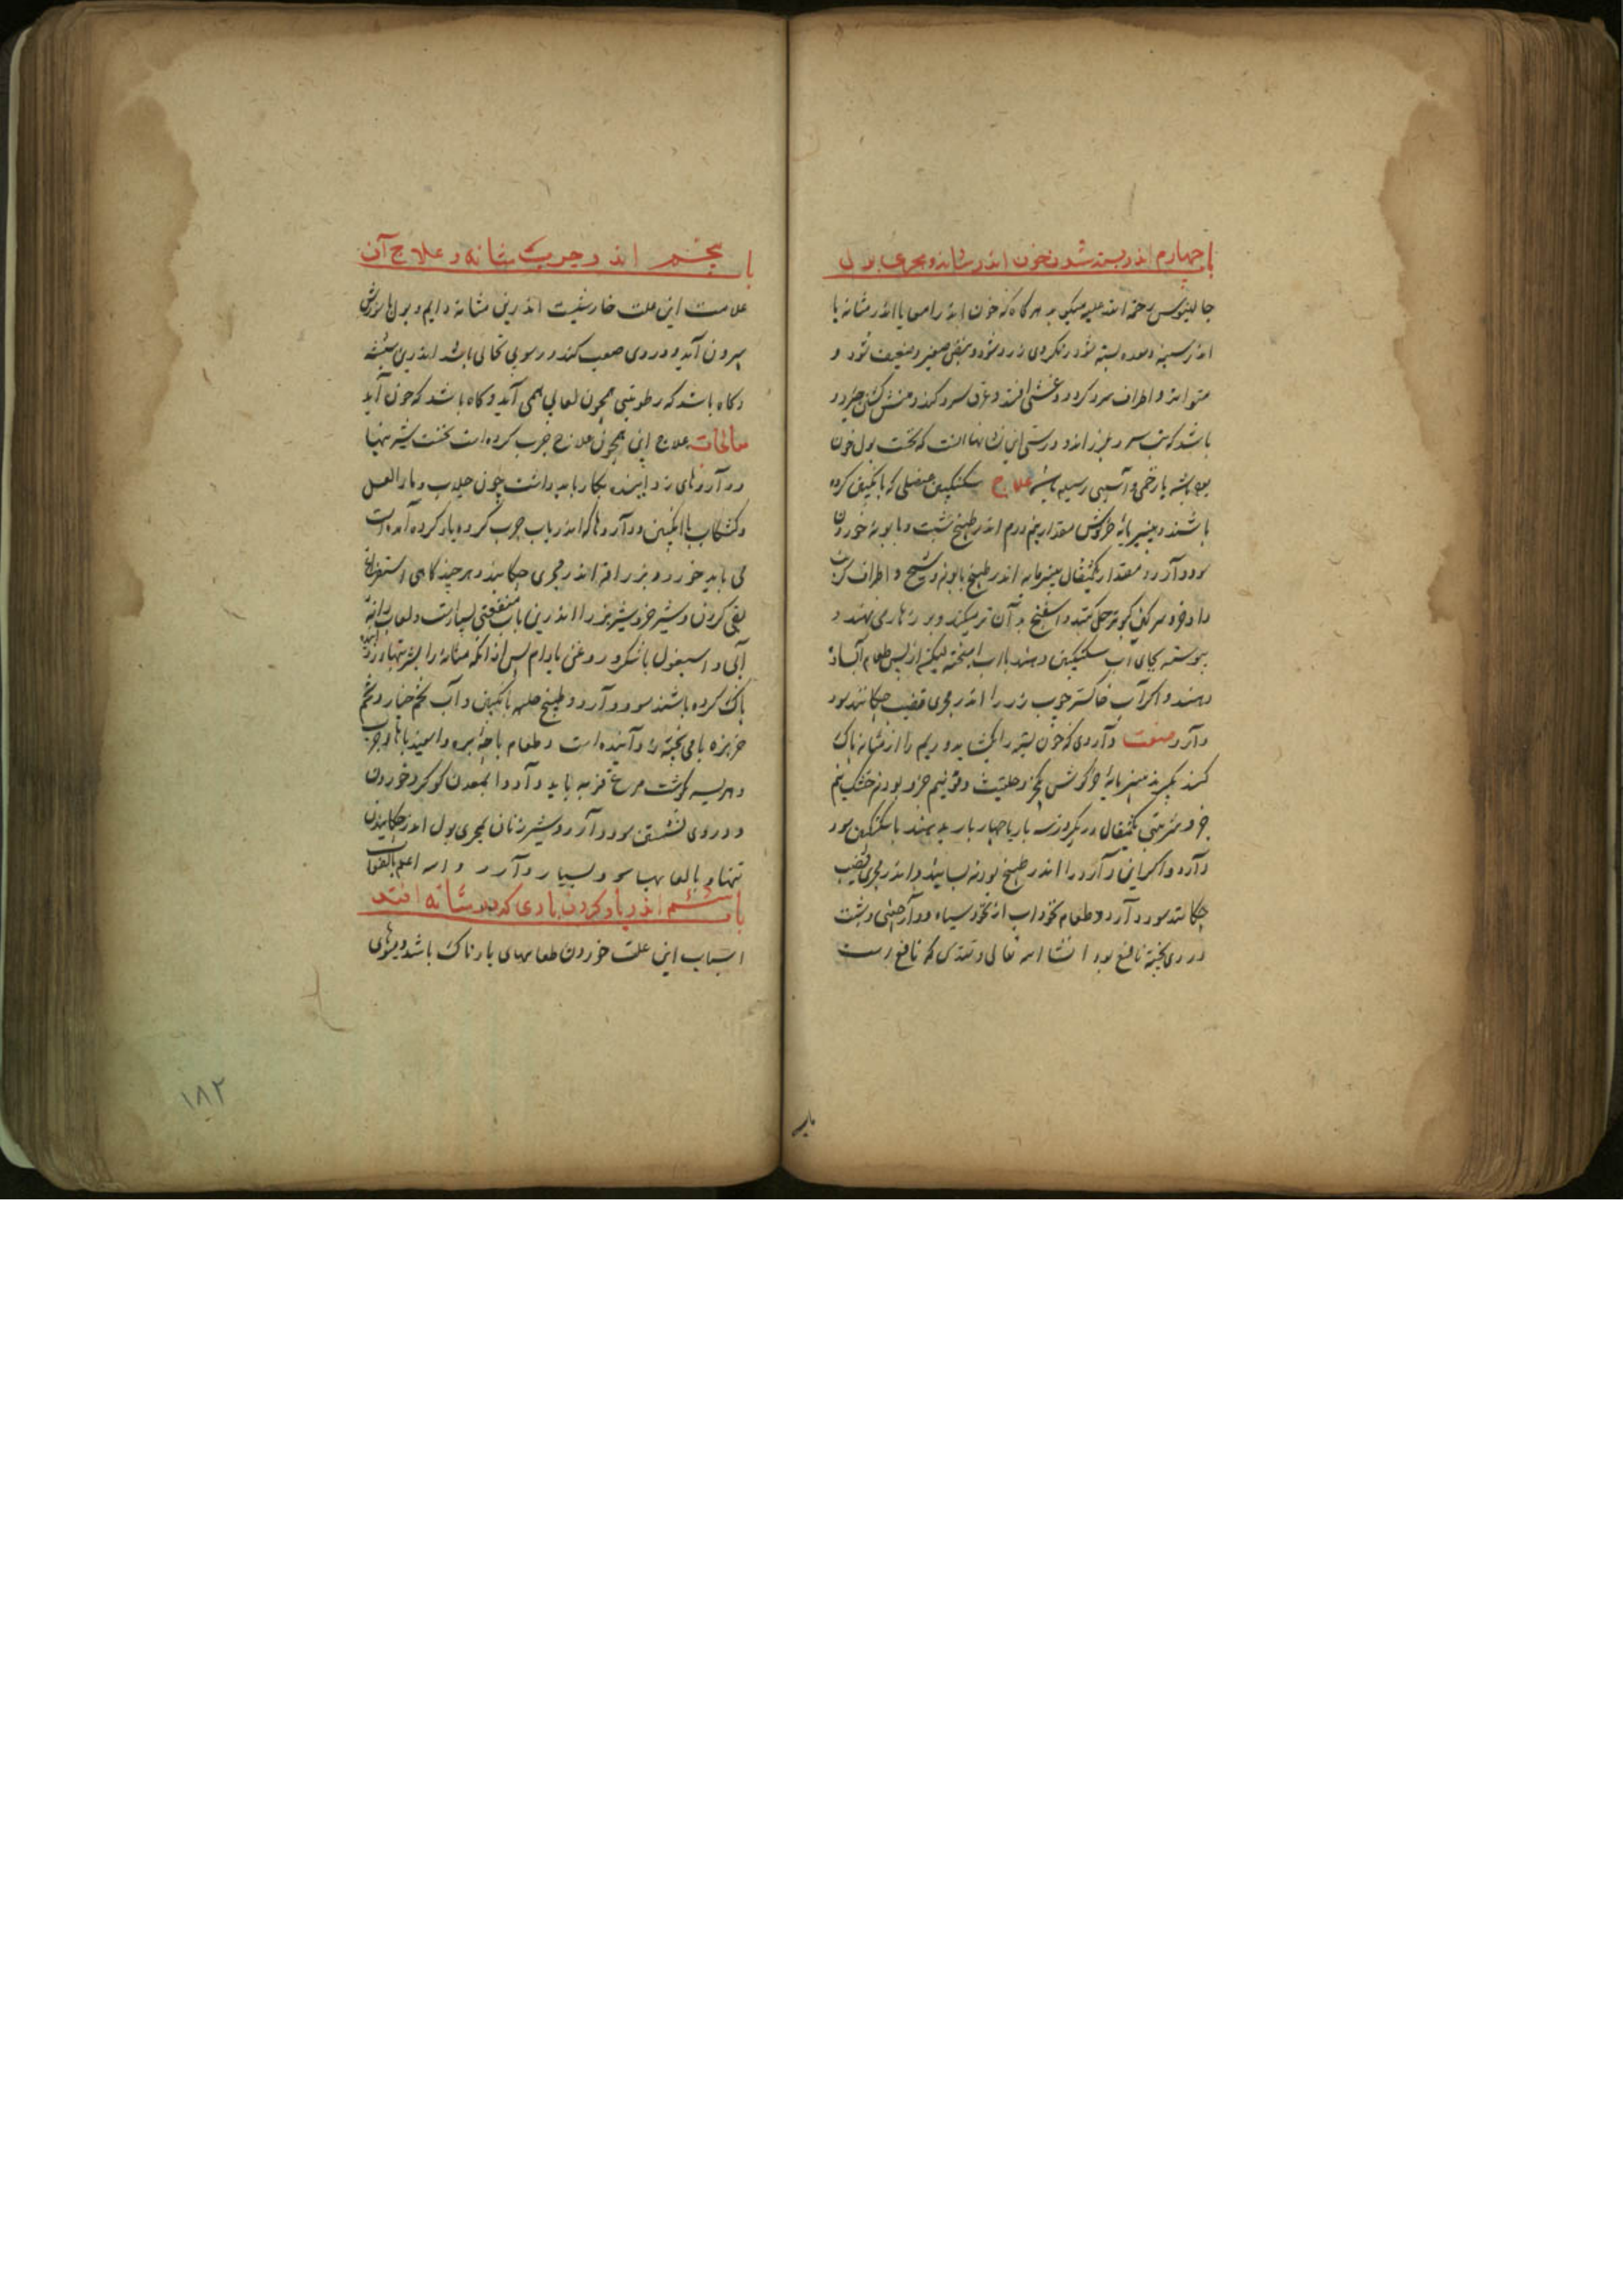 باب چهارم اندر بسته شدن خون اندر مثانه و مجری بول
جالینوس رحمة الله علیه میگوید هر گاه که خون اندر امعا یا اندر مثانه یا
اندر سینه و معده بسته شود رنگ روی زرد شود و نبض صغیر و ضعیف شود و
متواتر و اطراف سرد گردد و غشی افتد و عرق سرد کند و منش گشتن
باشد که تب سرد و لرز اندر این نشانها آنست که نخست بول خون
بوده باشد یا زخمی و آسیبی رسیده باشد علاج سکنگبین عنصلی که بانگبین کرده
باشند و پنیرمایه خرگوش مقدار نیم درم اندر طبیخ شبت و بابونه خوردن
سود دارد و مقدار یکمثقال پنیرمایه اندر طبیخ بابونه و شیح و اطراف کرن
دهند و سرگین کبوتر حل کنند و اسفنج بدان تر میکنند و بر زهار می نهند و
پیوسته بجای آب سکنگبین دهند با آب آمیخته لیکن از پس طعام
دهند و اگر آب خاکستر چوب رز را اندر مجری قضیب چکانند سود
دارد صفت داروی که خون بسته را بگشاید و ریم را از مثانه پاک
کند بگیرند پنیرمایه خرگوش یکجزو حلتیت دو نیم جزو پودنه خشک پنج
جزو شربتی یکمثقال در یکروز سه بار یا چهار بار بدهند با سکنگبین سود
دارد و اگر این دارو را اندر طبیخ پودنه بسایند و اندر مجری قضیب
چکانند سود دارد و طعام نخوداب از نخود سیاه و دارچینی و شبت
در وی پخته نافع بود انشا الله تعالی و تقدس که نافع است
باب پنجم اندر جرب مثانه و علاج آن
علامت این علت خارشیست اندرین مثانه دایم و بول با سوزش
بیرون آید و دردی صعب کند و رسوبی نخالی باشد اندرین شیشه
و گاه باشد که رطوبتی همچون لعابی همی آید و گاه باشد که خون آید
معالجات علاج این همچون علاج جرب گرده است نخست شیر تنها
و داروهای زداینده بکار باید داشت چون جلاب و ماء العسل
و کشکاب با انگبین و داروها که اندر باب جرب گرده یاد کرده آمدست
می باید خورد و بزراقه اندر مجری چکانید و هر چند گاهی استفراغ
بقی کردن و شیر خر و شیر بز را اندرین باب منفعتی بسیارست و لعاب دانه
آبی و اسبغول با شکر و روغن بادام پس از آنکه مثانه را بشیر تنها و زداینده
پاک کرده باشند سود دارد و طبیخ حلبه بانگبین و آب تخم خیار و تخم
خربزه با می پخته زداینده است و طعام پاچه بره و اسفیدباها چرب
و هریسه گوشت مرغ فربه باید و آب معدن گوگرد خوردن
و در وی نشستن سود دارد و شیر زنان بمجری بول اندر چکانیدن
تنها و با لعابها سود بسیار دارد و الله اعلم بالصواب
باب ششم اندر باد کردن بادی که در مثانه افتد
اسباب این علت خوردن طعامهای بادناک باشد و میوهای
۱۸۲